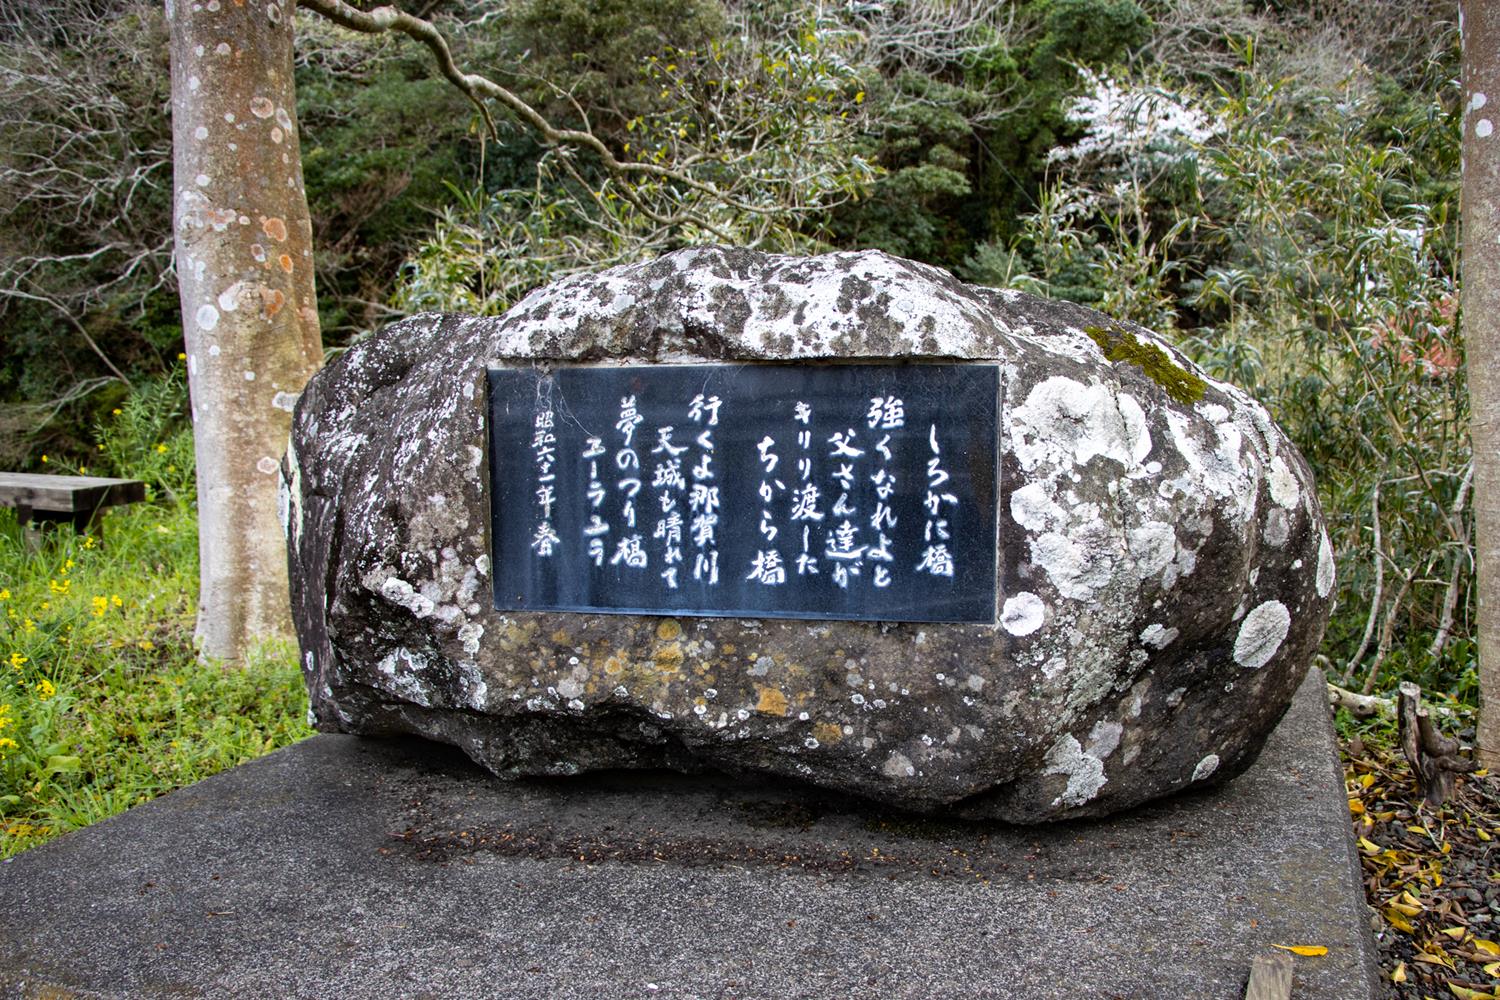 しろかに橋
強くなれよと
父さん達が
キリリ渡した
ちから橋
行くよ那賀川
天城も晴れて
夢のつり橋
ユーラユラ
昭和六十一年春